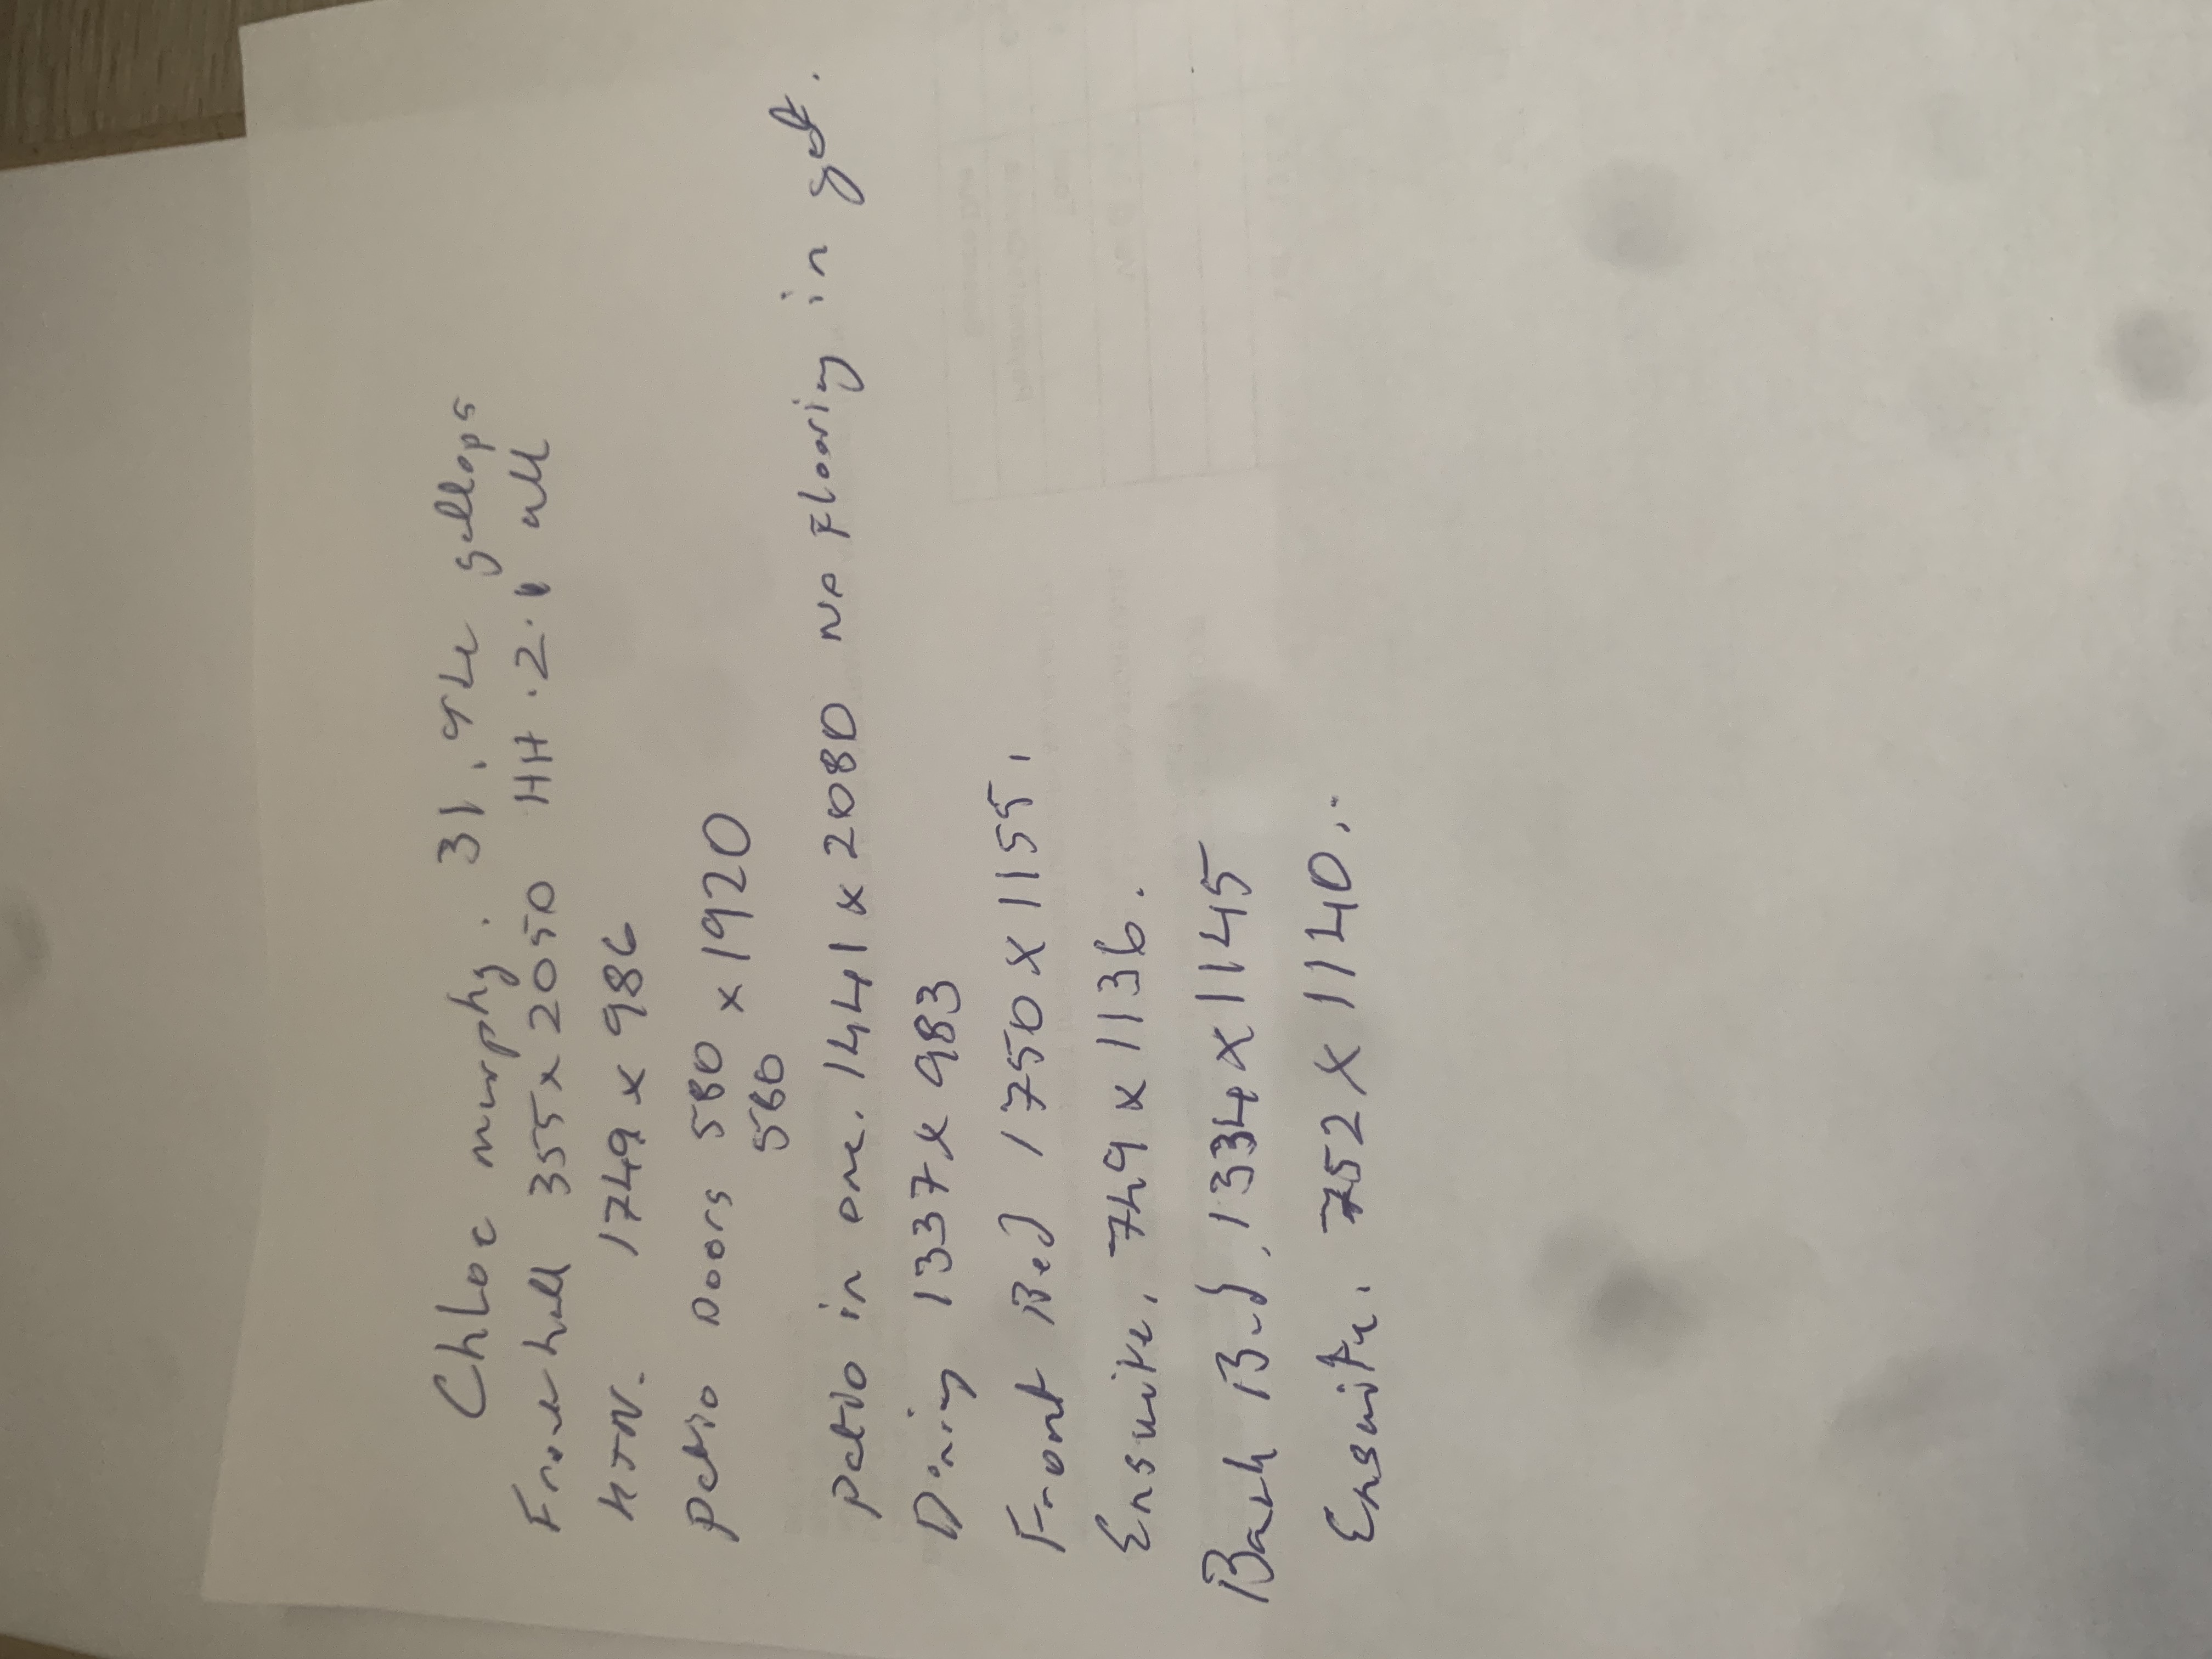 Chloe murphy. 31. The gallops
Front hall 355 x 2050 HH. 2.1 all
KTN. 1749 x 986
Patio Doors 580 x 1920
560
Patio in one. 1441 x 2080 No Flooring in yet.
Dining 1337 x 983
Front Bed 1750 x 1155.
Ensuite. 749 x 1136.
Back Bed. 1334 x 1145
Ensuite. 752 x 1140..